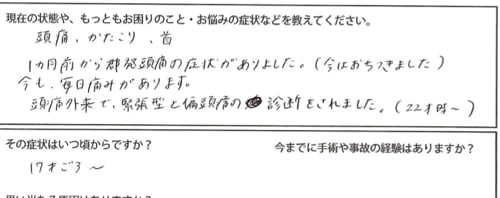 現在の状態や、もっともお困りのこと・お悩みの症状などを教えてください。
頭痛、かたこり、首
1カ月前から群発頭痛の症状がありました。(今はおちつきました)
今も、毎日痛みがあります。
頭痛外来で、緊張型と偏頭痛の診断をされました。(22才時~)
その症状はいつ頃からですか? 今までに手術や事故の経験はありますか?
17才ごろ~